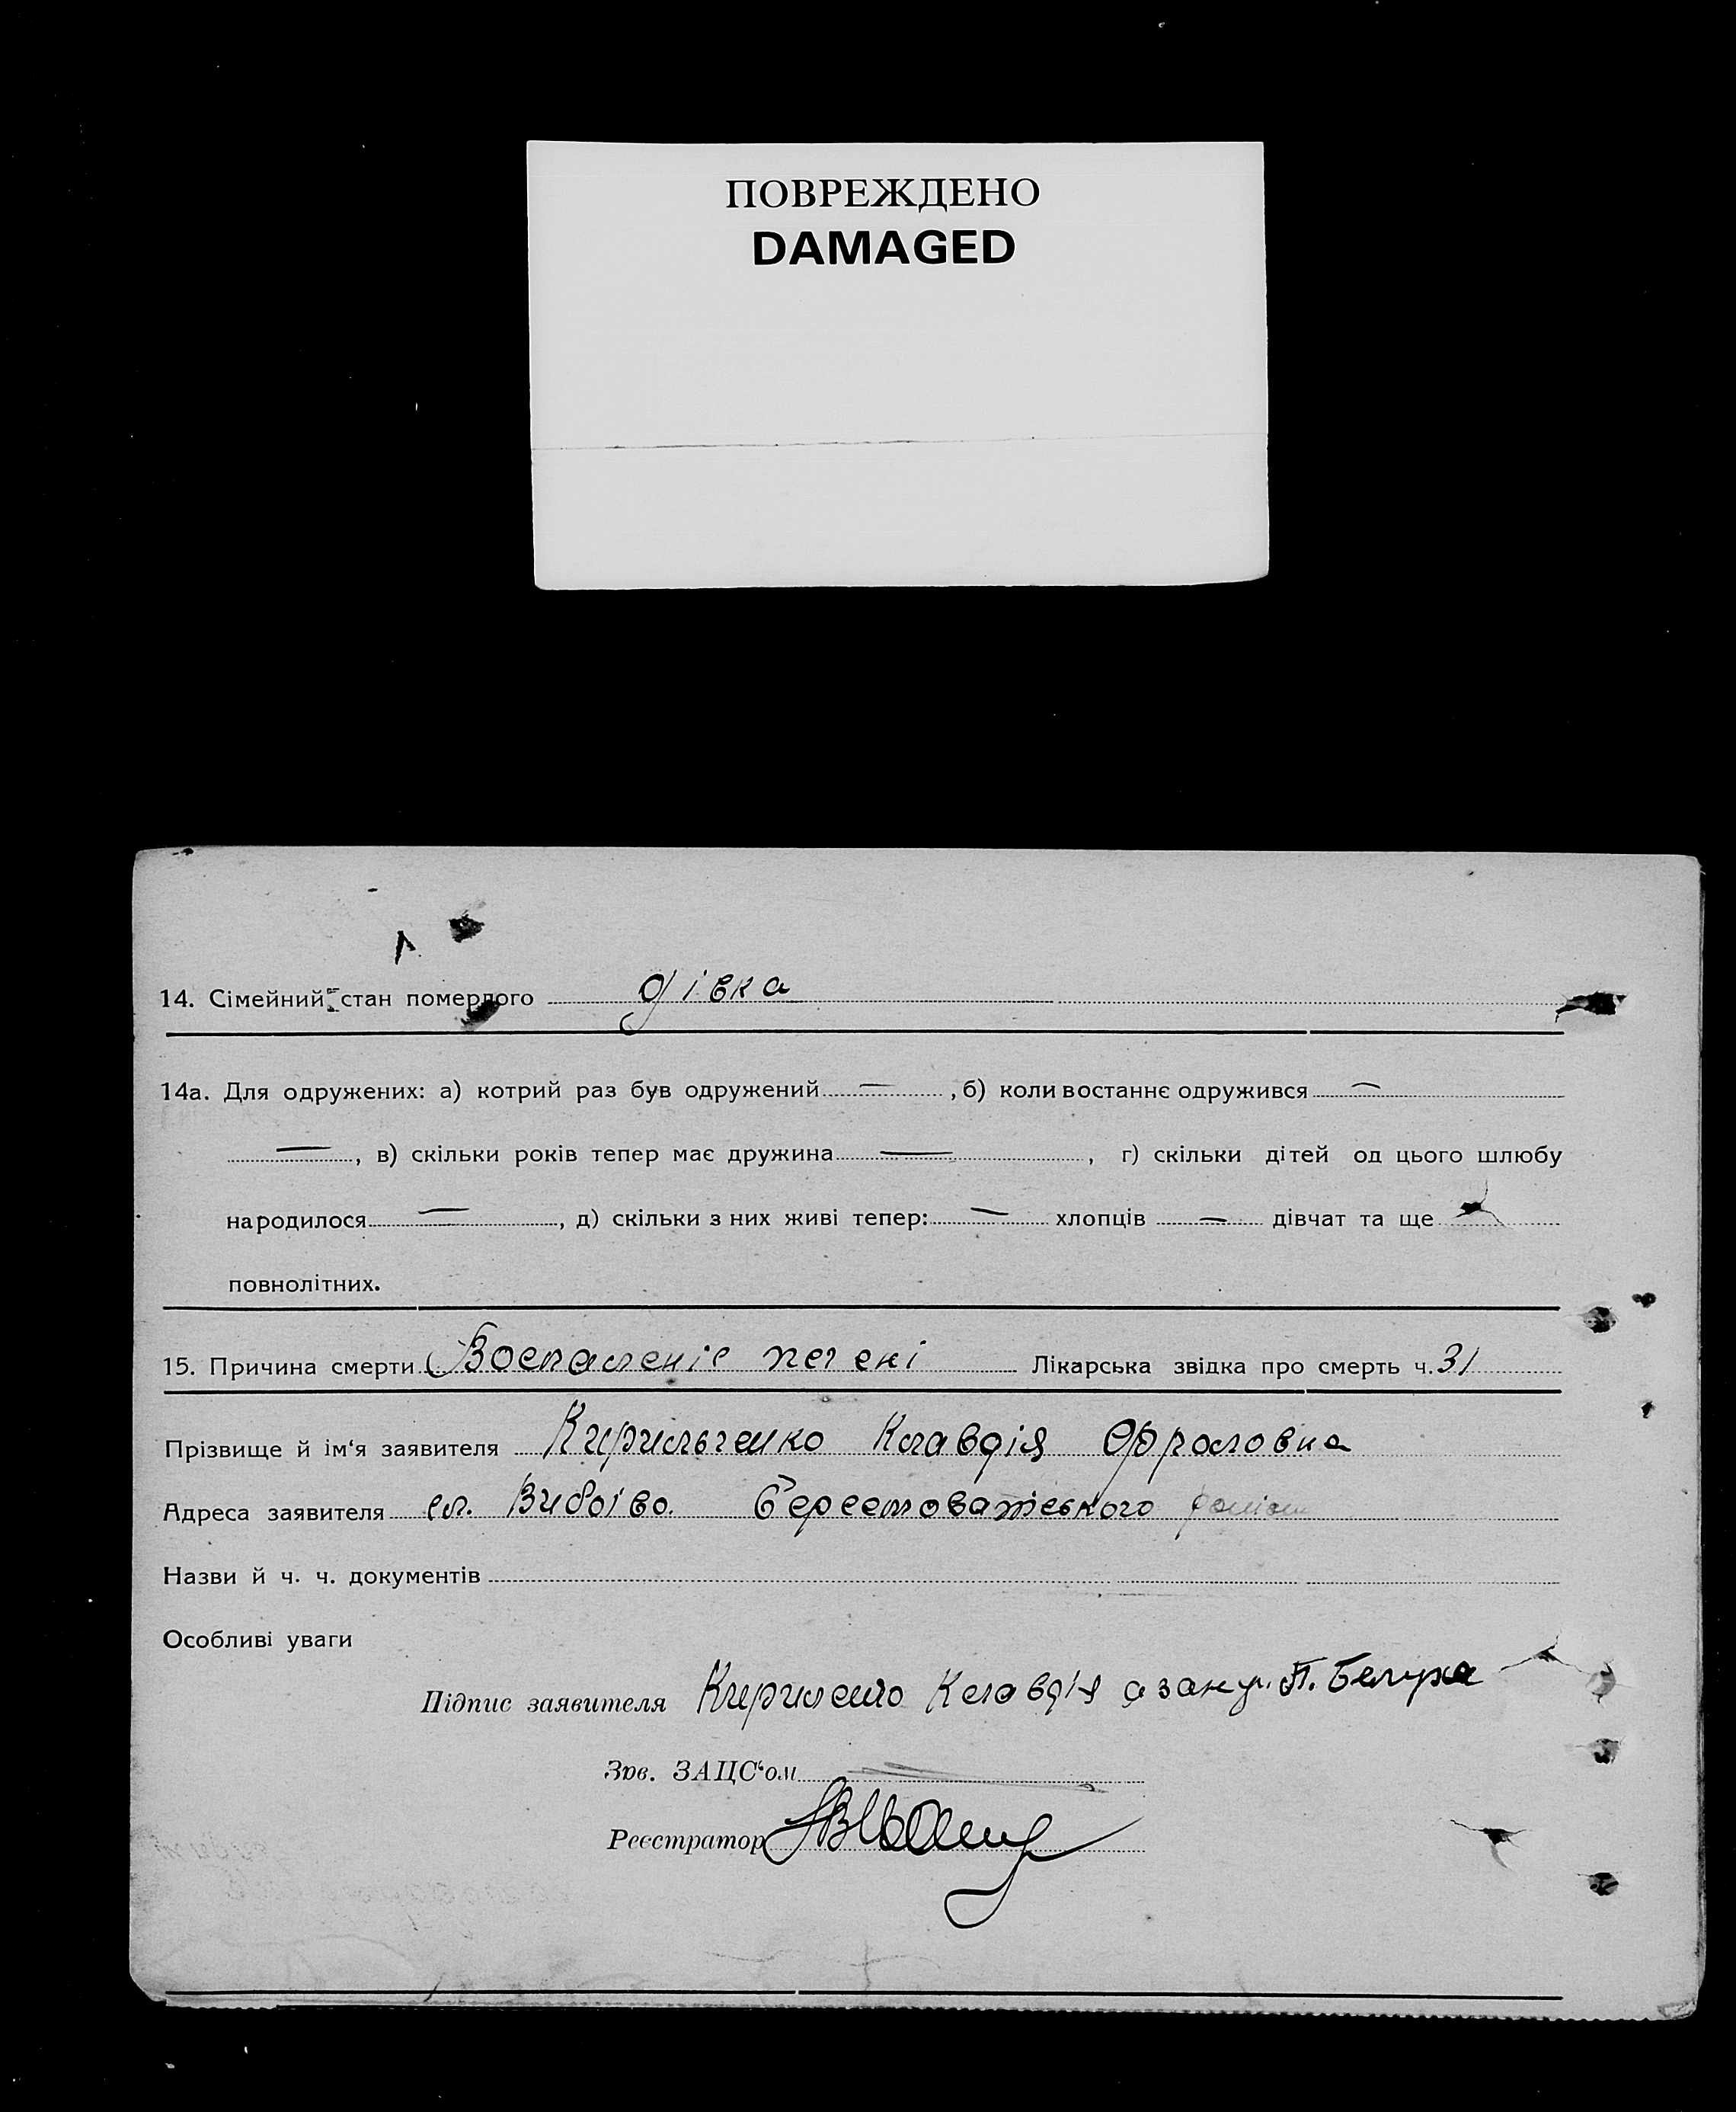 ПОВРЕЖДЕНО
DAMAGED
14. Сімейний стан померлого дівка
14а. Для одружених: а) котрий раз був одружений — , б) коли востаннє одружився —
— , в) скільки років тепер має дружина — , г) скільки дітей од цього шлюбу
народилося — , д) скільки з них живі тепер: — хлопців — дівчат та ще
повнолітних.
15. Причина смерти Воспаленіє печені Лікарська звідка про смерть ч. 31
Прізвище й ім'я заявителя Кирильченко Клавдія Фроловна
Адреса заявителя сл. Берестоватського
Назви й ч. ч. документів
Особливі уваги
Підпис заявителя Клавдія П. Белуха
Зав. ЗАЦС'ом
Реєстратор